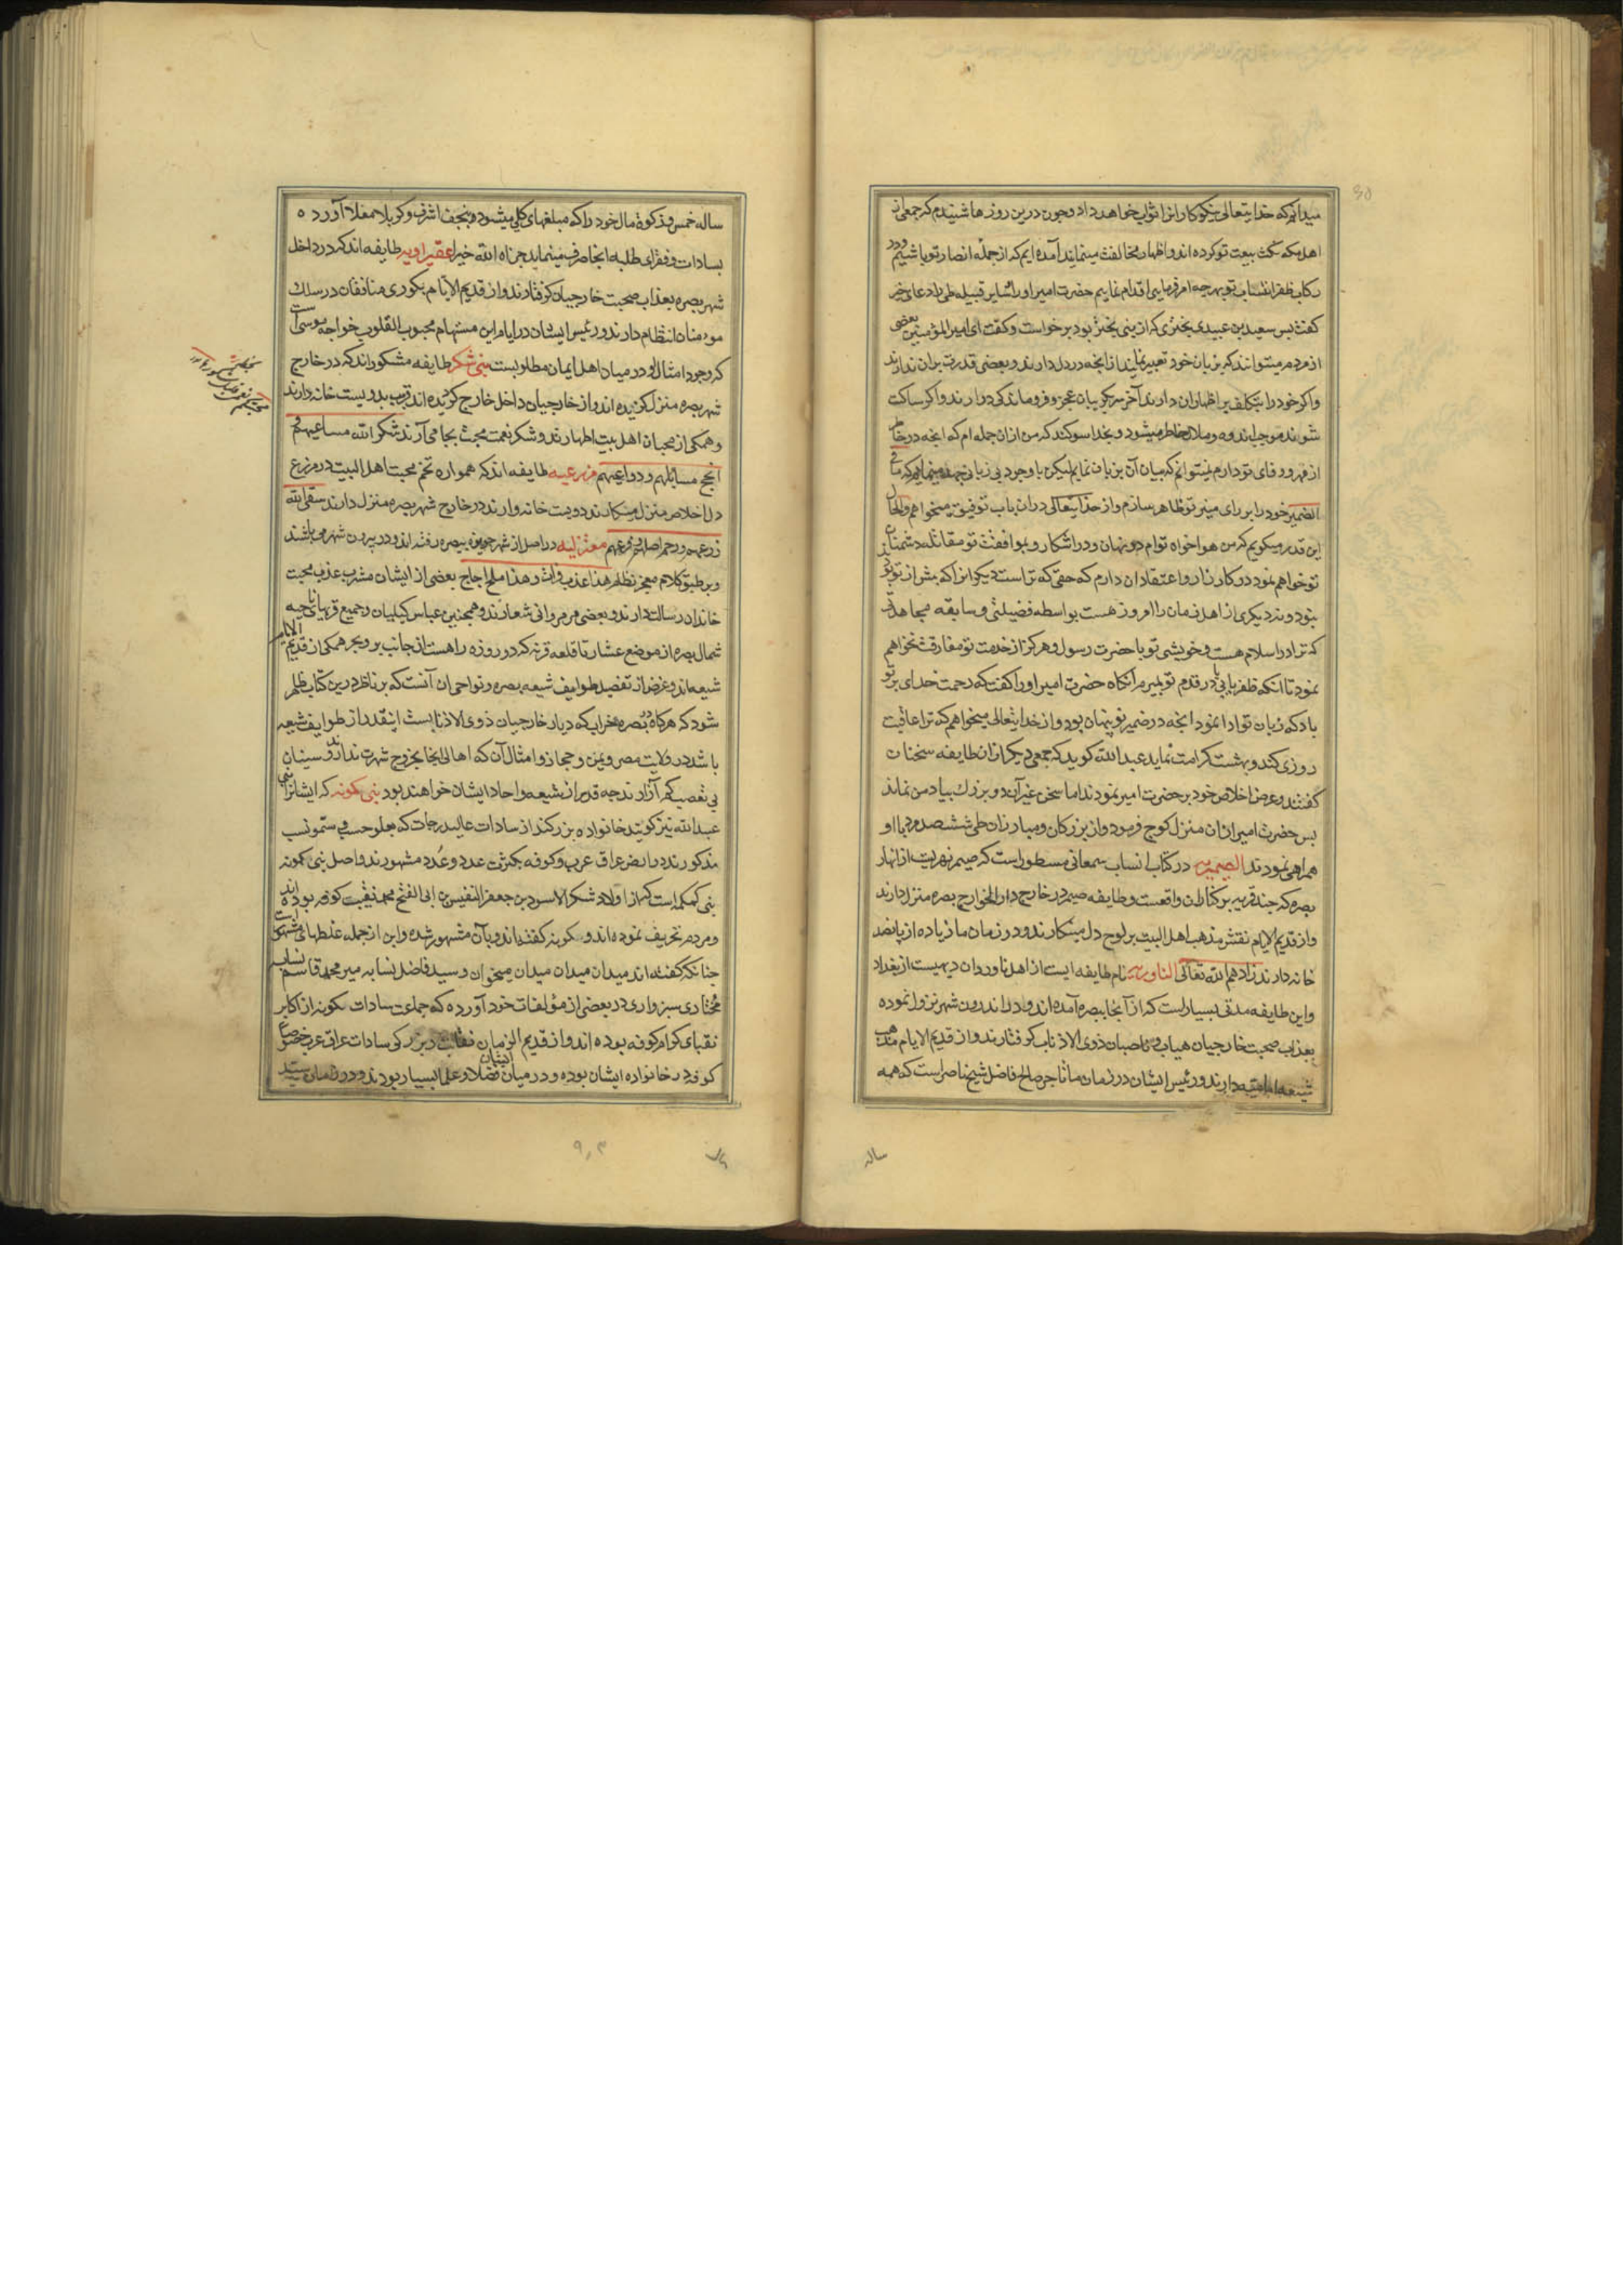 میدانم که خدایتعالی نیکوکارانرا ثواب خواهد داد و چون درین روزها شنیدم که جمعی از
اهل مکه نکث بیعت تو کرده اند و اظهار مخالفت مینمایند آمده ایم که از جمله انصار تو باشیم و در
رکاب ظفر انتساب تو بهرچه امر فرمایی اقدام نماییم حضرت امیر او را و سایر قبیله طی را دعای خیر
گفت پس سعید بن عبیدی بختری که از بنی بختر بود برخواست و گفت ای امیر المؤمنین بعضی
از مردم میتوانند که بزبان خود تعبیر نمایند از آنچه در دل دارند و بعضی قدرت بران ندارند
و اگر خود را بتکلف بر اظهار ان دارند آخر سر بگریبان عجز و فروماندگی در ارند و اگر ساکت
شوند موجب اندوه و ملال خاطر میشود و بخدا سوکند که من از ان جمله ام که انچه در خاطر
از مهر و وفای تو دارم نمیتوانم که بیان آن بزبان نمایم لیکن با وجود بی زبانی جهد مینمایم که ما فی
الضمیر خود را بر رای منیر تو ظاهر سازم و از خدایتعالی در ان باب توفیق میخواهم والحال
این قدر میکویم که من هواخواه توام در نهان و در اشکار و بموافقت تو مقاتله دشمنان
تو خواهم نمود در کارزار و اعتقاد ان دارم که حقی که تراست دیگرانرا که پیش از تو
نبود و نه دیگری از اهل زمان را امروز هست بواسطه فضیلتی و سابقه مجاهدتی
که ترا در اسلام هست و خویشی تو با حضرت رسول و هرگز از خدمت تو مفارقت نخواهم
نمود تا انکه ظفر یابی یا در قدم تو بمیرم آنگاه حضرت امیر او را گفت که رحمت خدای بر تو
باد که زبان تو ادا نمود انچه در ضمیر تو پنهان بود و از خدایتعالی میخواهم که ترا عافیت
روزی کند و بهشت کرامت نماید عبدالله گوید که جمعی دیگر از ان طایفه سخنان
گفتند و عرض اخلاص خود بر حضرت امیر نمودند اما سخن غیر آن دو بزرک بیاد من نماند
پس حضرت امیر از ان منزل کوچ فرمود و از بزرکان و مبارزان طی ششصد مرد با او
همراهی نمودند الصیمریه در کتاب انساب سمعانی مسطور است که صیمر نهریست از انهار
بصره که چند قریه بر کنار ان واقعست و طایفه صیمر در خارج دار الخوارج بصره منزل دارند
و از قدیم الایام نقش مذهب اهل البیت بر لوح دل مینکارند و در زمان ما زیاده از پانصد
خانه دارند زادهم الله تعالی الناوریه نام طایفه ایست از اهل ناور و ان دیهیست از بغداد
و این طایفه مدتی بسیار است که از آنجا ببصره آمده اند و در اندرون شهر نزول نموده
بعذاب صحبت خارجیان و ناصبان ذوی الاذناب گرفتارند و از قدیم الایام مذهب
شیعه امامیه دارند و رئیس ایشان در زمان ما تاجر صالح فاضل شیخ ناصر است که همه
ساله
ساله خمس و زکوة مال خود را که مبلغهای کلی میشود بنجف اشرف و کربلا معلا آورده
بسادات و فقرای طلبه انجا صرف مینماید جزاه الله خیرا عقیراویه طایفه اند که در داخل
شهر بصره بعذاب صحبت خارجیان گرفتارند و از قدیم الایام بکوری منافقان در سلک
مومنان انتظام دارند و رئیس ایشان در ایام این مستهام محبوب القلوب خواجه موسی است
که وجود امثال او در میان اهل ایمان مطلوبست بنی شکر طایفه مشکوراند که در خارج
شهر بصره منزل گزیده اند و از خارجیان داخل خارج گردیده اند قریب بدویست خانه دارند
و همکی از محبان اهل بیت اطهارند و شکر نعمت محبت بجا می آرند شکر الله مساعیهم و
انجح مسایلهم و دواعیهم مزرعیه طایفه اند که همواره تخم محبت اهل البیت در مزرع
دل اخلاص منزل میکارند دویست خانه وارند در خارج شهر بصره منزل دارند سقی الله
زرعهم و رحم اصلهم و فرعهم معتزلیه در اصل از شهر حویزه ببصره رفته اند و در بیرون شهر میباشند
و بر طبق کلام معجز نظام هذا عذب فرات و هذا ملح اجاج بعضی از ایشان مشرب عذب محبت
خاندان رسالت دارند و بعضی مروانی شعارند و همچنین عباس کیلیان و جمیع قریهای ناحیه
شمال بصره از موضع عشار تا قلعه قرنه که دو روزه راهست از جانب بر و بحر همکی از قدیم الایام
شیعه اند و غرض از تفصیل طوایف شیعه بصره و نواحی ان آنست که بر ناظر درین کتاب ظاهر
شود که هرگاه در بصره خراب که دیار خارجیان ذوی الاذنابست اینقدر از طوایف شیعه
باشد در ولایت مصر و یمن و حجاز و امثال آن که اهالی انجا بخروج شهرت ندارند و سینان
بی تعصب کم آزارند چه قدر از شیعه و احاد ایشان خواهند بود بنی کمونه که ایشانرا بنی
عبدالله نیز گویند خانواده بزرکند از سادات عالیدرجات که بعلو حسب و سمو نسب
مذکورند در ارض عراق عرب و کوفه بکثرت عدد و عُدد مشهورند و اصل بنی کمونه
بنی کمکمه است که از اولاد شکر الاسود بن جعفر النفیس بن ابی الفتح محمد نقیب کوفه بوده اند
و مردم تحریف نموده اند و کمونه گفته اند و بآن مشهور شده و این از جمله غلطهای مشهور است
چنانکه گفته اند میدان میدان میدان میخوان و سید فاضل نسابه میر محمد قاسم نسابه
مختاری سبزواری در بعضی از مؤلفات خود آورده که جماعت سادات کمونه از اکابر
نقبای کرام کوفه بوده اند و از قدیم الزمان نقابت و بزرکی سادات عراق عرب خصوصا
کوفه در خانواده ایشان بوده و در میان ایشان فضلا و علما بسیار بودند و در زمان سید